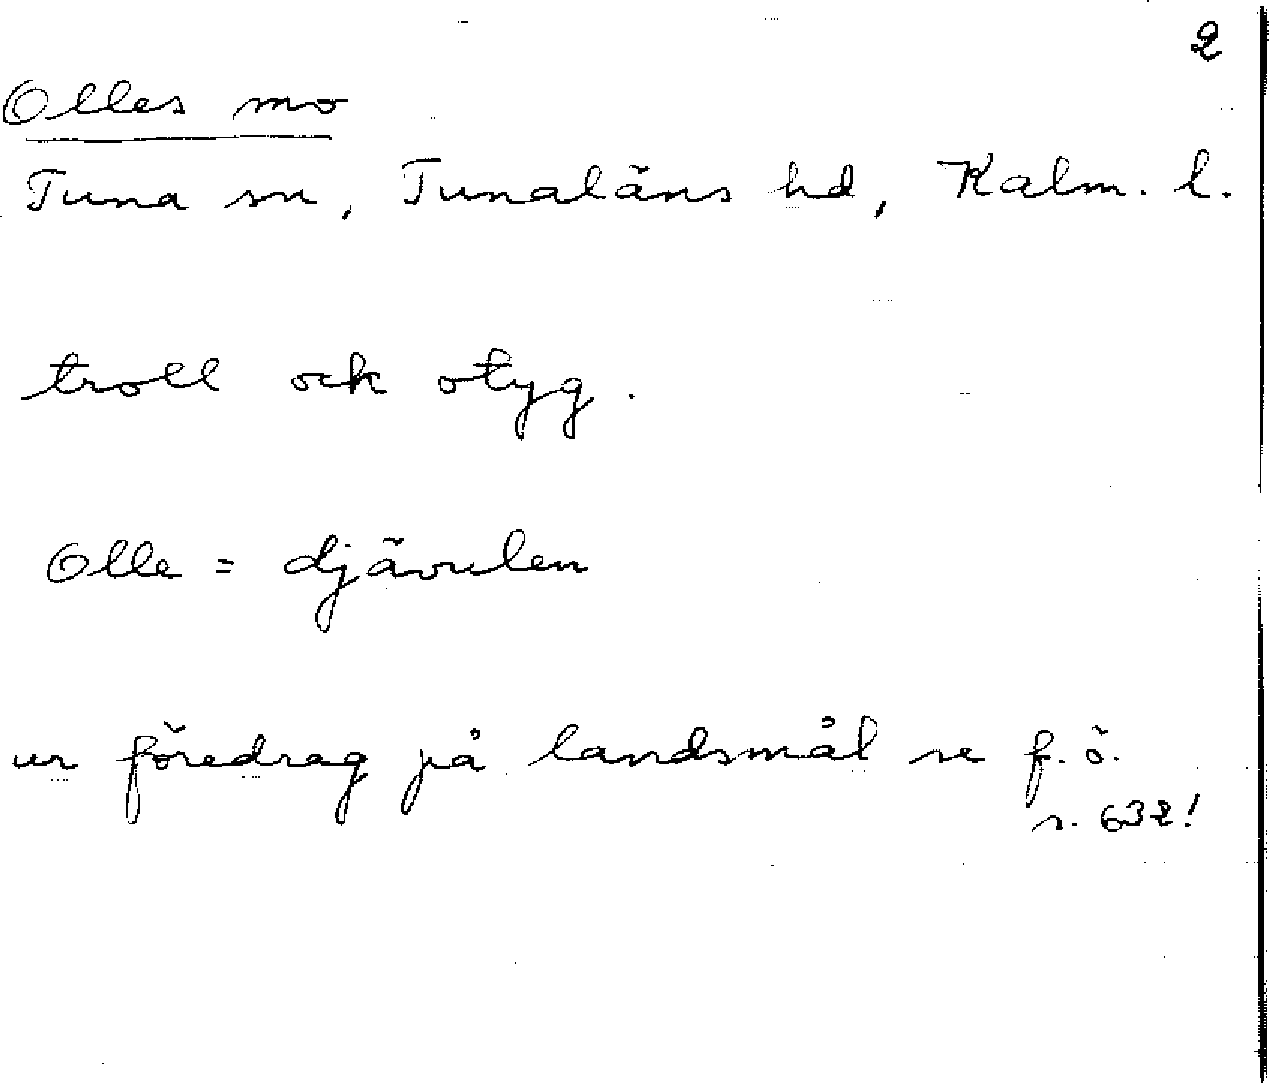 2
Olles mo
Tuna sn, Tunaläns hd, Kalm. l.
troll och otyg.
Olle = djävulen
ur föredrag på landsmål se f. ö.
s. 632!